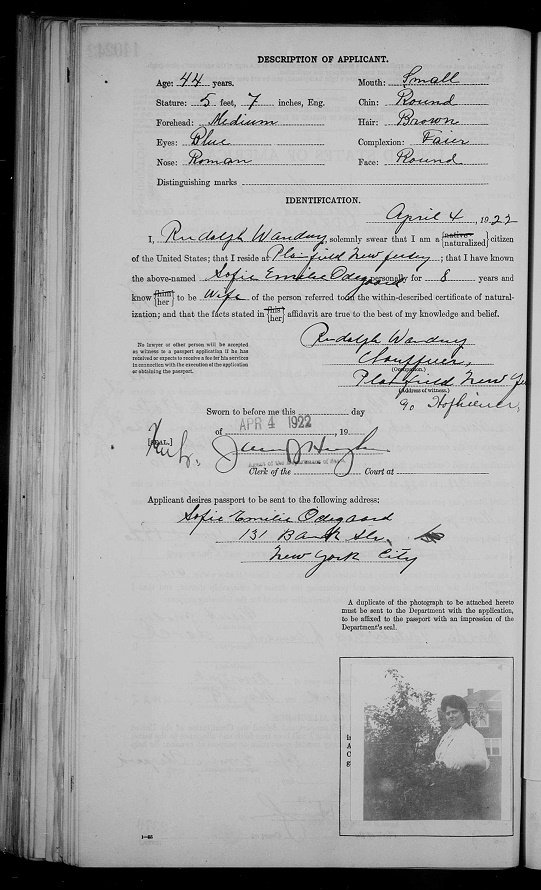 DESCRIPTION OF APPLICANT.
Age: 44 years. Mouth: Small
Stature: 5 feet, 7 inches, Eng. Chin: Round
Forehead: Medium Hair: Brown
Eyes: Blue Complexion: Fair
Nose: Roman Face: Round
Distinguishing marks
IDENTIFICATION.
April 4, 1922
I, Rudolph Wandry, solemnly swear that I am a {native naturalized} citizen
of the United States; that I reside at Plainfield New Jersey; that I have known
the above-named Sofie Emilie Odegaard personally for 8 years and
know {him her} to be wife of the person referred to in the within-described certificate of natural-
ization; and that the facts stated in {his her} affidavit are true to the best of my knowledge and belief.
No lawyer or other person will be accepted
as witness to a passport application if he has
received or expects to receive a fee for his services
in connection with the execution of the application
or obtaining the passport.
Rudolph Wandry
Chauffeur,
(Occupation.)
Plainfield New
(Address of witness.)
Sworn to before me this day
of APR 4 1922, 19
[SEAL.]
Agent of the Department of State.
Clerk of the Court at
Applicant desires passport to be sent to the following address:
Sofie Emilie Odegaard
131 Bank Str.
New York City
A duplicate of the photograph to be attached hereto
must be sent to the Department with the application,
to be affixed to the passport with an impression of the
Department's seal.